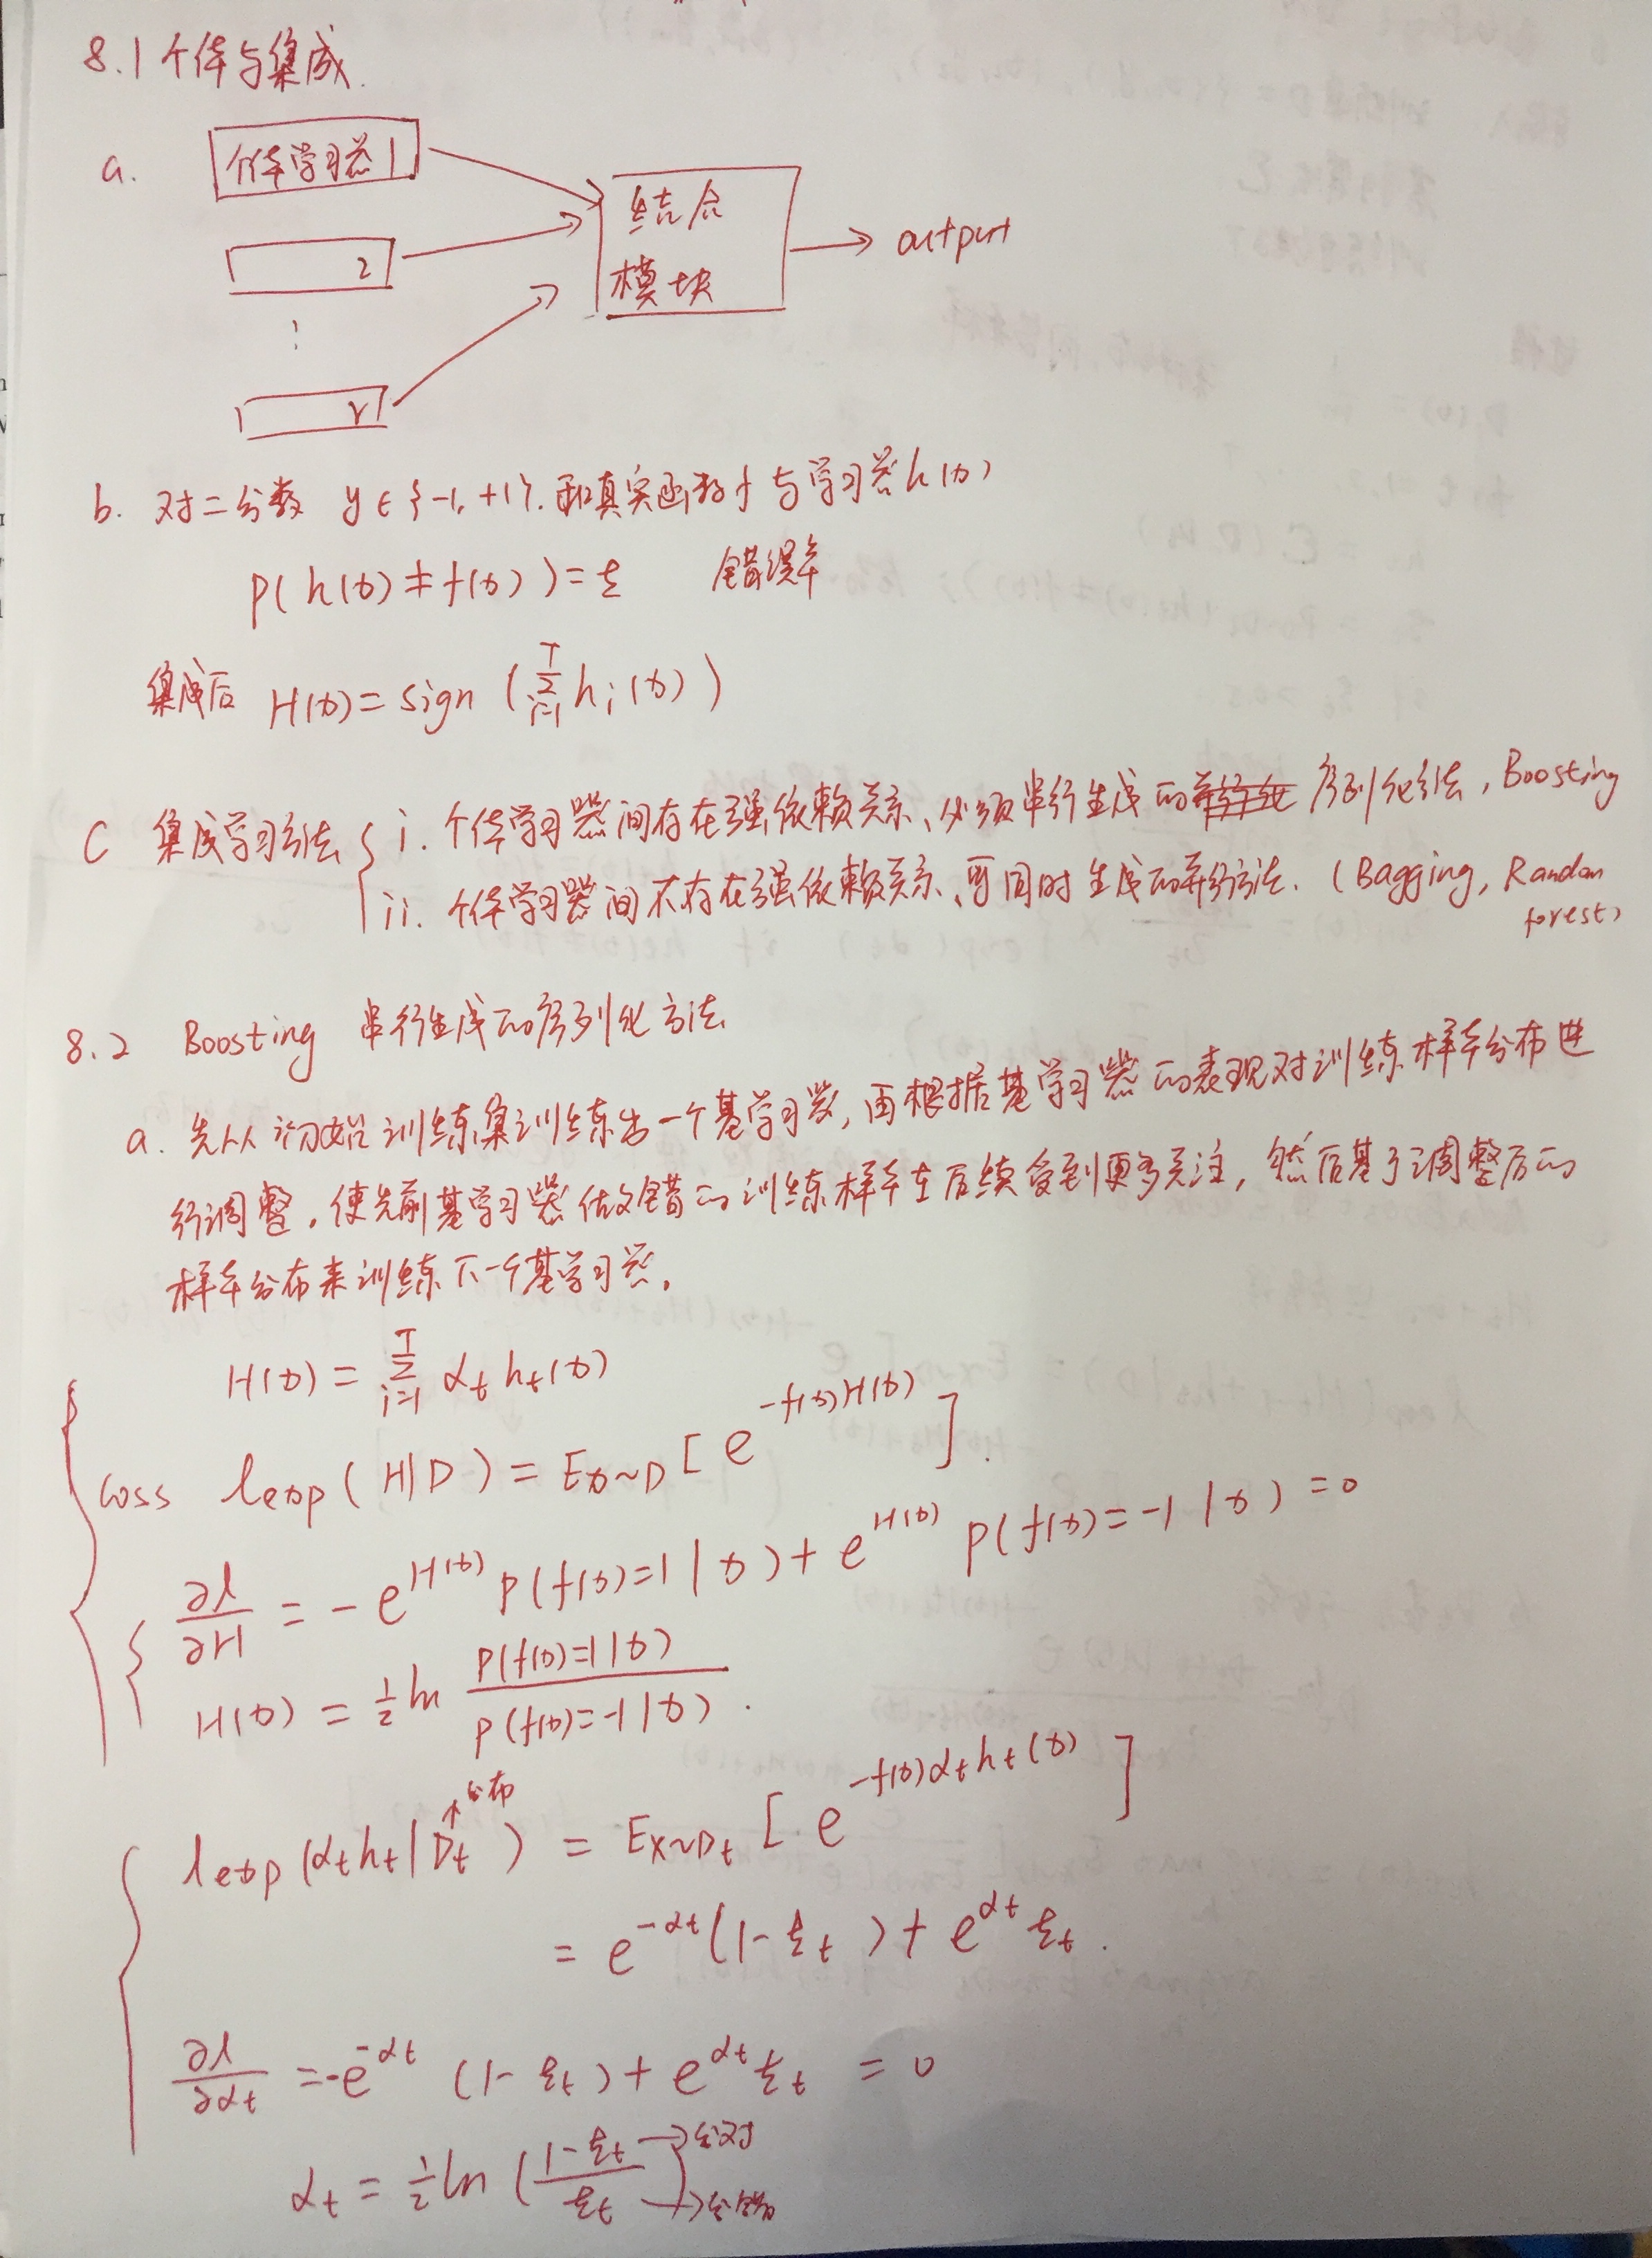 8.1 个体与集成.
a. 个体学习器1
结合
模块
output
2
⋮
r
b. 对二分数 y∈{-1, +1}. 和真实函数f与学习器h(x)
P(h(x)≠f(x))=ξ 错误率
集成后 H(x)=sign(∑_{i=1}^{T} h_i(x))
C 集成学习方法 { i. 个体学习器间存在强依赖关系、必须串行生成的 序列化方法, Boosting
ii. 个体学习器间不存在强依赖关系、可同时生成的并行方法. (Bagging, Random
forest)
8.2 Boosting 串行生成的序列化方法
a. 先从初始训练集训练出一个基学习器, 再根据基学习器的表现对训练样本分布进
行调整, 使先前基学习器做错的训练样本在后续受到更多关注, 然后基于调整后的
样本分布来训练下一个基学习器.
H(x) = ∑_{i=1}^{T} α_t h_t(x)
loss l_exp(H|D) = E_{x~D}[e^{-f(x)H(x)}].
∂l/∂H = -e^{H(x)} P(f(x)=1|x) + e^{H(x)} P(f(x)=-1|x) = 0
H(x) = 1/2 ln P(f(x)=1|x) / P(f(x)=-1|x).
分布
l_exp(α_t h_t|D_t) = E_{x~D_t}[e^{-f(x)α_t h_t(x)}]
= e^{-α_t}(1-ξ_t) + e^{α_t} ξ_t.
∂l/∂α_t = -e^{-α_t}(1-ξ_t) + e^{α_t} ξ_t = 0
α_t = 1/2 ln((1-ξ_t)/ξ_t) →分对
→分错